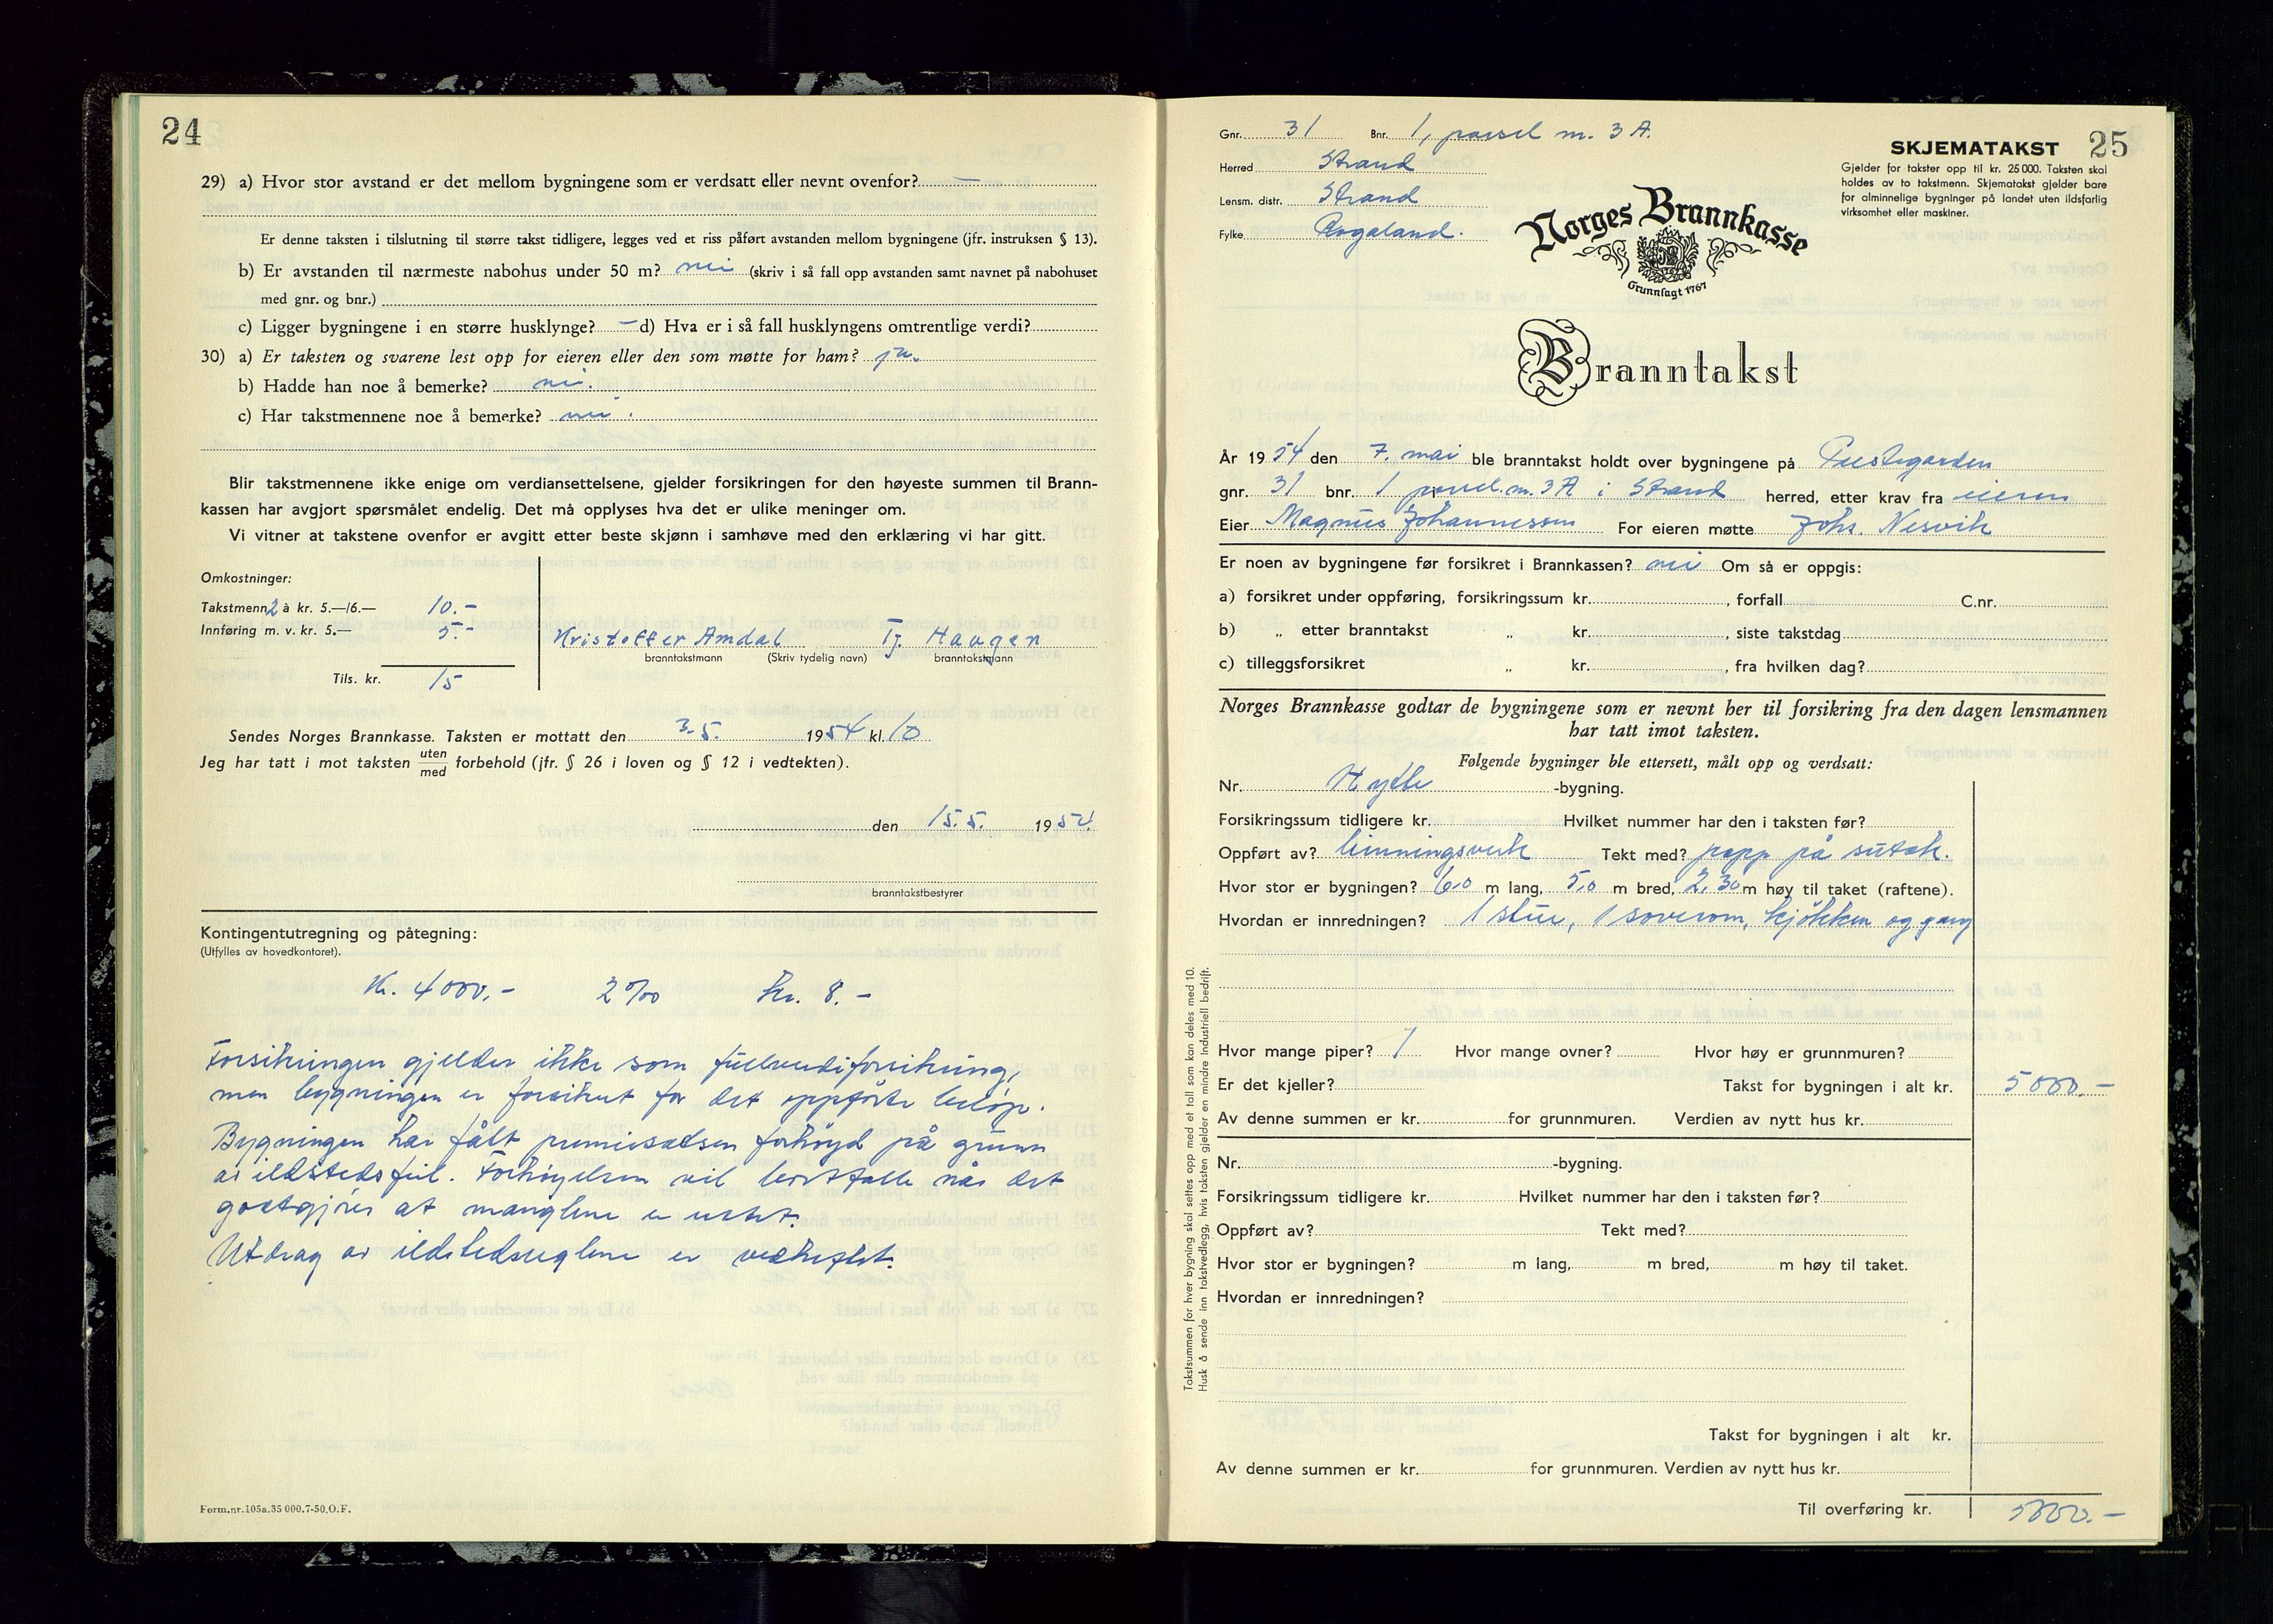 24
29) a) Hvor stor avstand er det mellom bygningene som er verdsatt eller nevnt ovenfor? —
Er denne taksten i tilslutning til større takst tidligere, legges ved et riss påført avstanden mellom bygningene (jfr. instruksen § 13).
b) Er avstanden til nærmeste nabohus under 50 m? nei (skriv i så fall opp avstanden samt navnet på nabohuset
med gnr. og bnr.)
c) Ligger bygningene i en større husklynge? — d) Hva er i så fall husklyngens omtrentlige verdi?
30) a) Er taksten og svarene lest opp for eieren eller den som møtte for ham? ja.
b) Hadde han noe å bemerke? nei.
c) Har takstmennene noe å bemerke? nei.
Blir takstmennene ikke enige om verdiansettelsene, gjelder forsikringen for den høyeste summen til Brann-
kassen har avgjort spørsmålet endelig. Det må opplyses hva det er ulike meninger om.
Vi vitner at takstene ovenfor er avgitt etter beste skjønn i samhøve med den erklæring vi har gitt.
Omkostninger:
Takstmenn 2 à kr. 5.—/6.— 10.-
Innføring m. v. kr. 5.— 5.-
Kristoffer Amdal Tj. Haugen
branntakstmann (Skriv tydelig navn) branntakstmann
Tils. kr. 15
Sendes Norges Brannkasse. Taksten er mottatt den 3.5. 1954 kl. 10
Jeg har tatt i mot taksten uten/med forbehold (jfr. § 26 i loven og § 12 i vedtekten).
den 15.5. 1954
branntakstbestyrer
Kontingentutregning og påtegning:
(Utfylles av hovedkontoret).
Kr. 4000.- 2‰ kr. 8.-
Forsikringen gjelder ikke som fullverdiforsikring,
men bygningen er forsikret for det oppførte beløp.
Bygningen har fått premiesatsen forhøyd på grunn
av ildstedsfeil. Forhøyelsen vil bortfalle når det
godtgjøres at manglene er rettet.
Utdrag av ildstedsreglene er vedheftet.
Form.nr.105a.35 000.7-50.O.F.
25
Gnr. 31 Bnr. 1, parsel m. 3 A.
Herred Strand
Lensm. distr. Strand
Fylke Rogaland.
SKJEMATAKST
Gjelder for takster opp til kr. 25 000. Taksten skal
holdes av to takstmenn. Skjematakst gjelder bare
for alminnelige bygninger på landet uten ildsfarlig
virksomhet eller maskiner.
Norges Brannkasse
Grunnlagt 1767
Branntakst
År 1954 den 7. mai ble branntakst holdt over bygningene på Prestegarden
gnr. 31 bnr. 1 parsel. m. 3 A i Strand herred, etter krav fra eieren
Eier Magnus Johannessen For eieren møtte Johs. Nesvik
Er noen av bygningene før forsikret i Brannkassen? nei Om så er oppgis:
a) forsikret under oppføring, forsikringssum kr. , forfall C.nr.
b) „ etter branntakst „ kr. , siste takstdag
c) tilleggsforsikret „ kr. , fra hvilken dag?
Norges Brannkasse godtar de bygningene som er nevnt her til forsikring fra den dagen lensmannen
har tatt imot taksten.
Følgende bygninger ble ettersett, målt opp og verdsatt:
Nr. Hytte -bygning.
Forsikringssum tidligere kr. Hvilket nummer har den i taksten før?
Oppført av? binningsverk Tekt med? papp på sutak.
Hvor stor er bygningen? 6.0 m lang, 5.0 m bred, 2.30 m høy til taket (raftene).
Hvordan er innredningen? 1 stue, 1 soverom, kjøkken og gang
Hvor mange piper? 1 Hvor mange ovner? Hvor høy er grunnmuren?
Er det kjeller? Takst for bygningen i alt kr. 5000.-
Av denne summen er kr. for grunnmuren. Verdien av nytt hus kr.
Nr. -bygning.
Forsikringssum tidligere kr. Hvilket nummer har den i taksten før?
Oppført av? Tekt med?
Hvor stor er bygningen? m lang, m bred, m høy til taket.
Hvordan er innredningen?
Takst for bygningen i alt kr.
Av denne summen er kr. for grunnmuren. Verdien av nytt hus kr.
Til overføring kr. 5000.-
Takstsummen for hver bygning skal settes opp med et tall som kan deles med 10.
Husk å sende inn takstvedlegg, hvis taksten gjelder en mindre industriell bedrift.